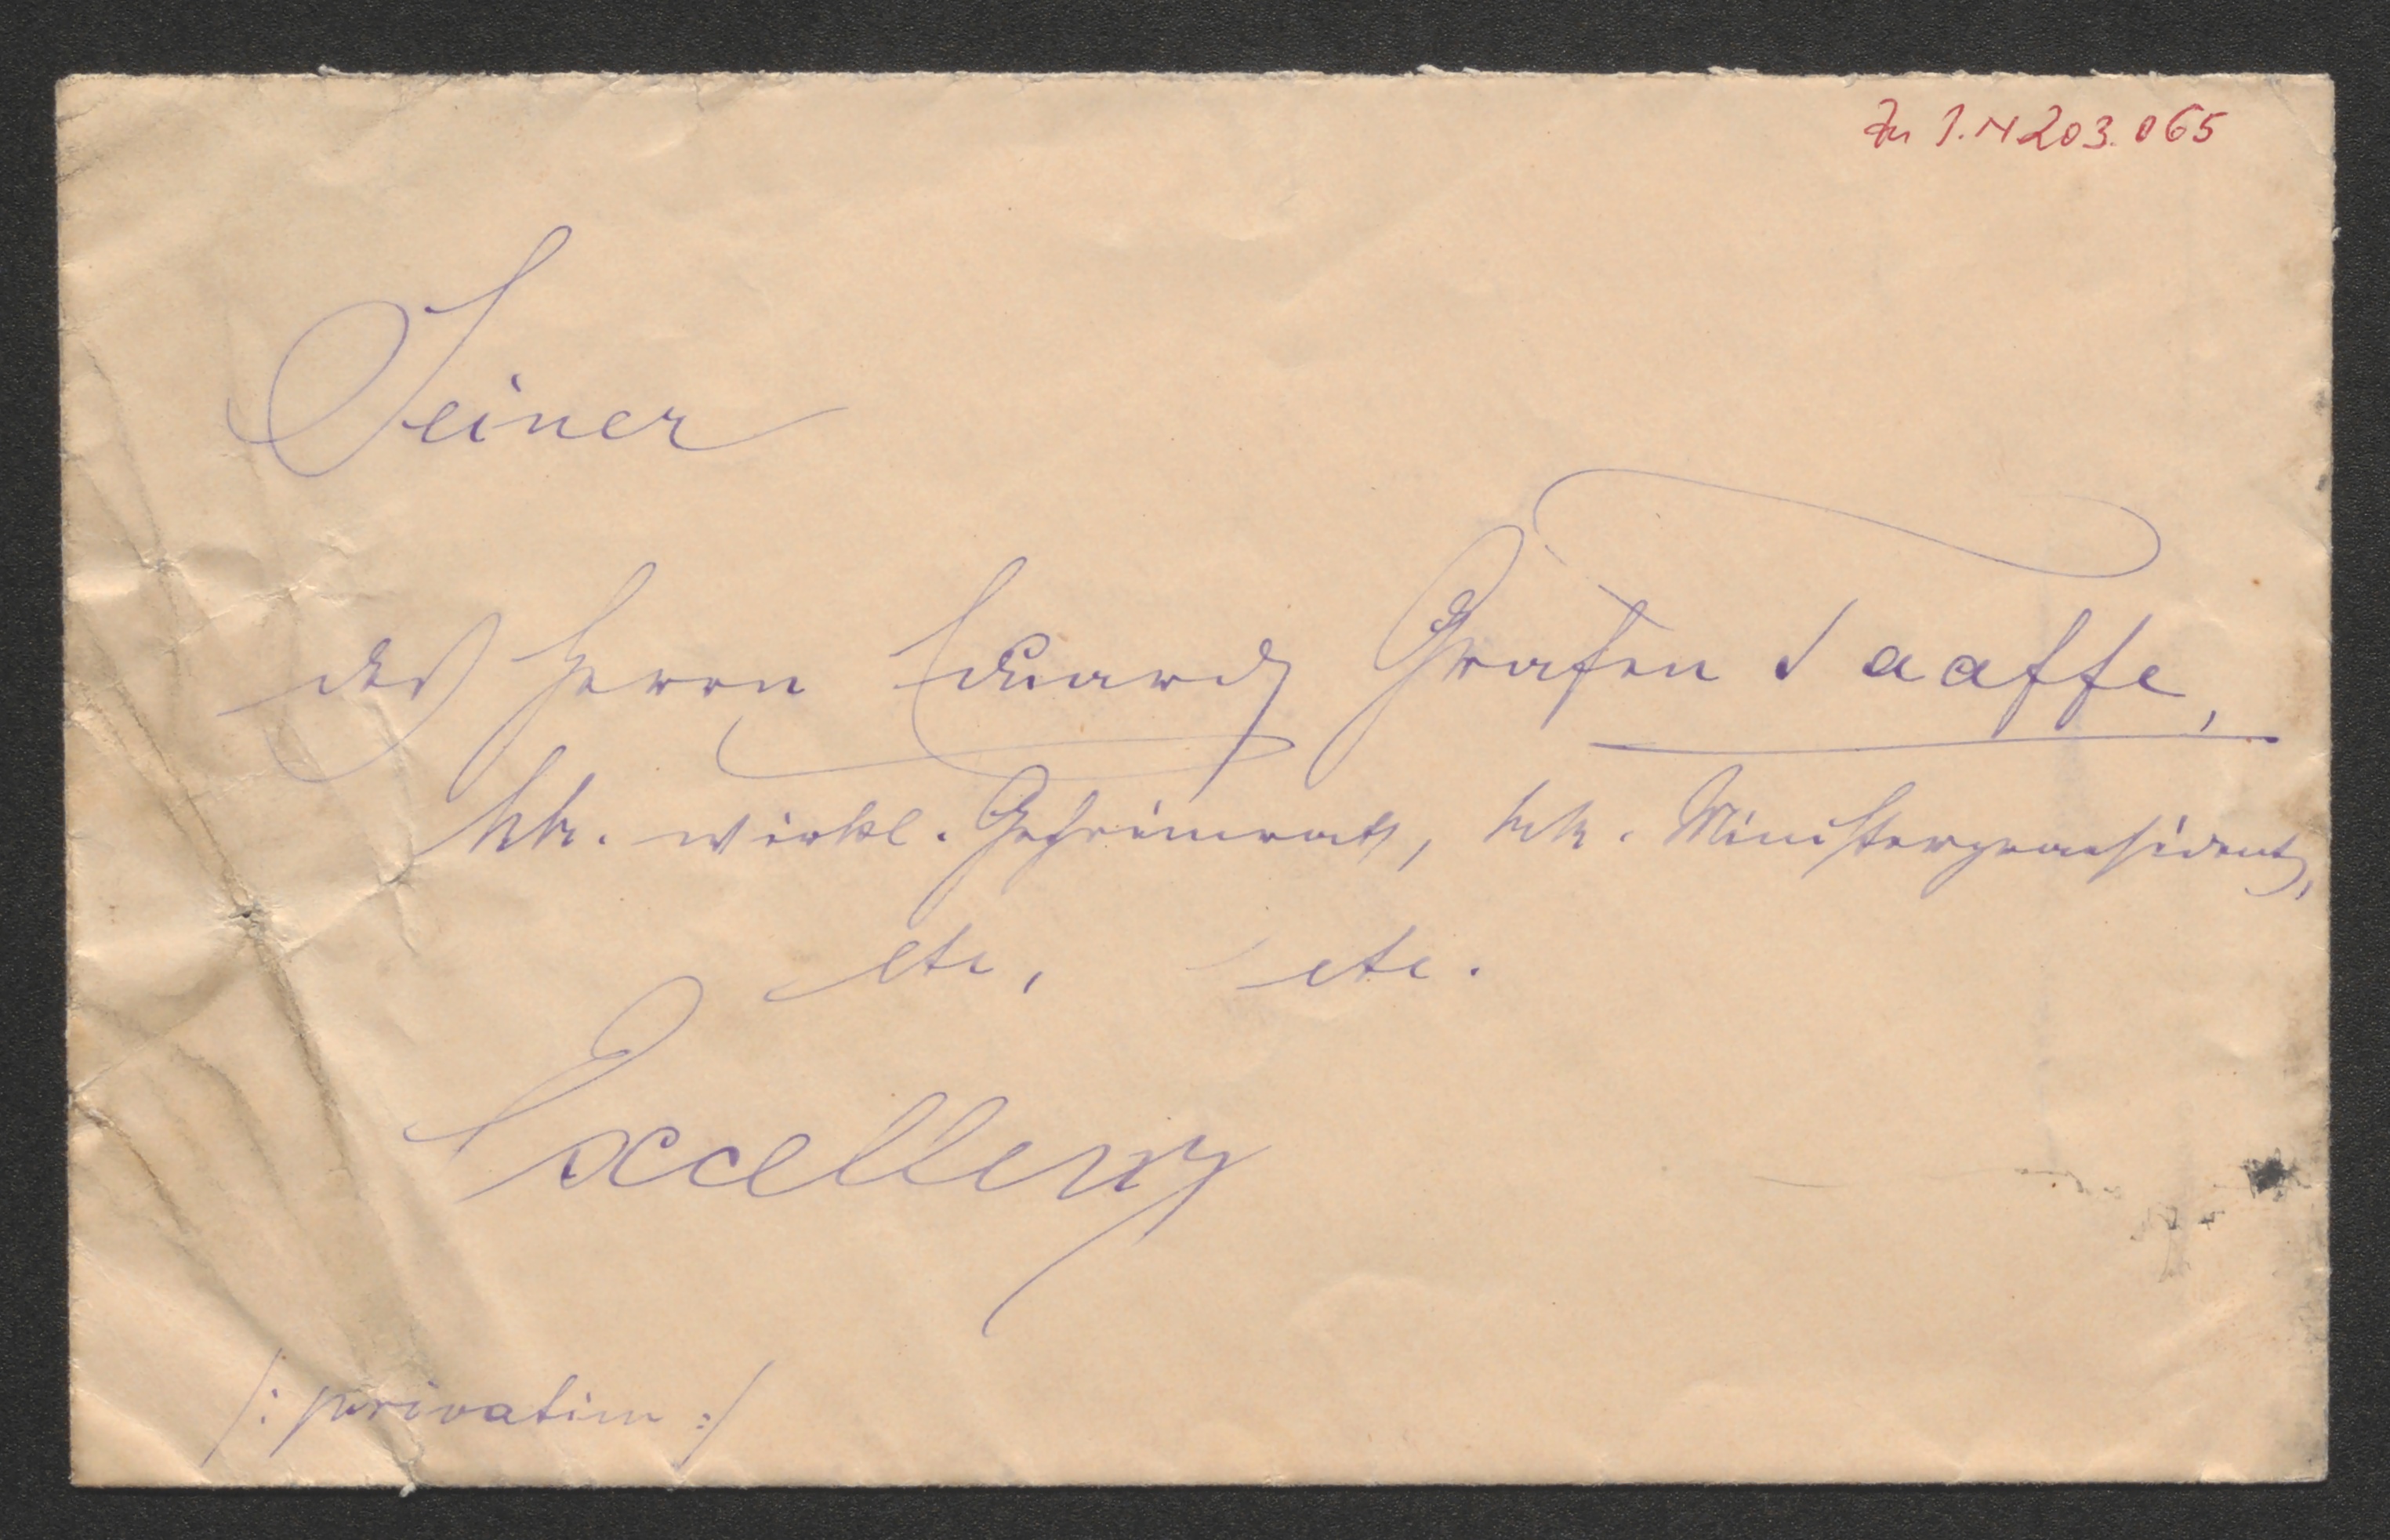 Zu I.N 203.065
Seiner
des Herrn Eduard Grafen Taaffe,
kk. wirkl. Geheimrath, kk. Ministerpraesident,
etc, etc.
Excellenz
/: privatim :/